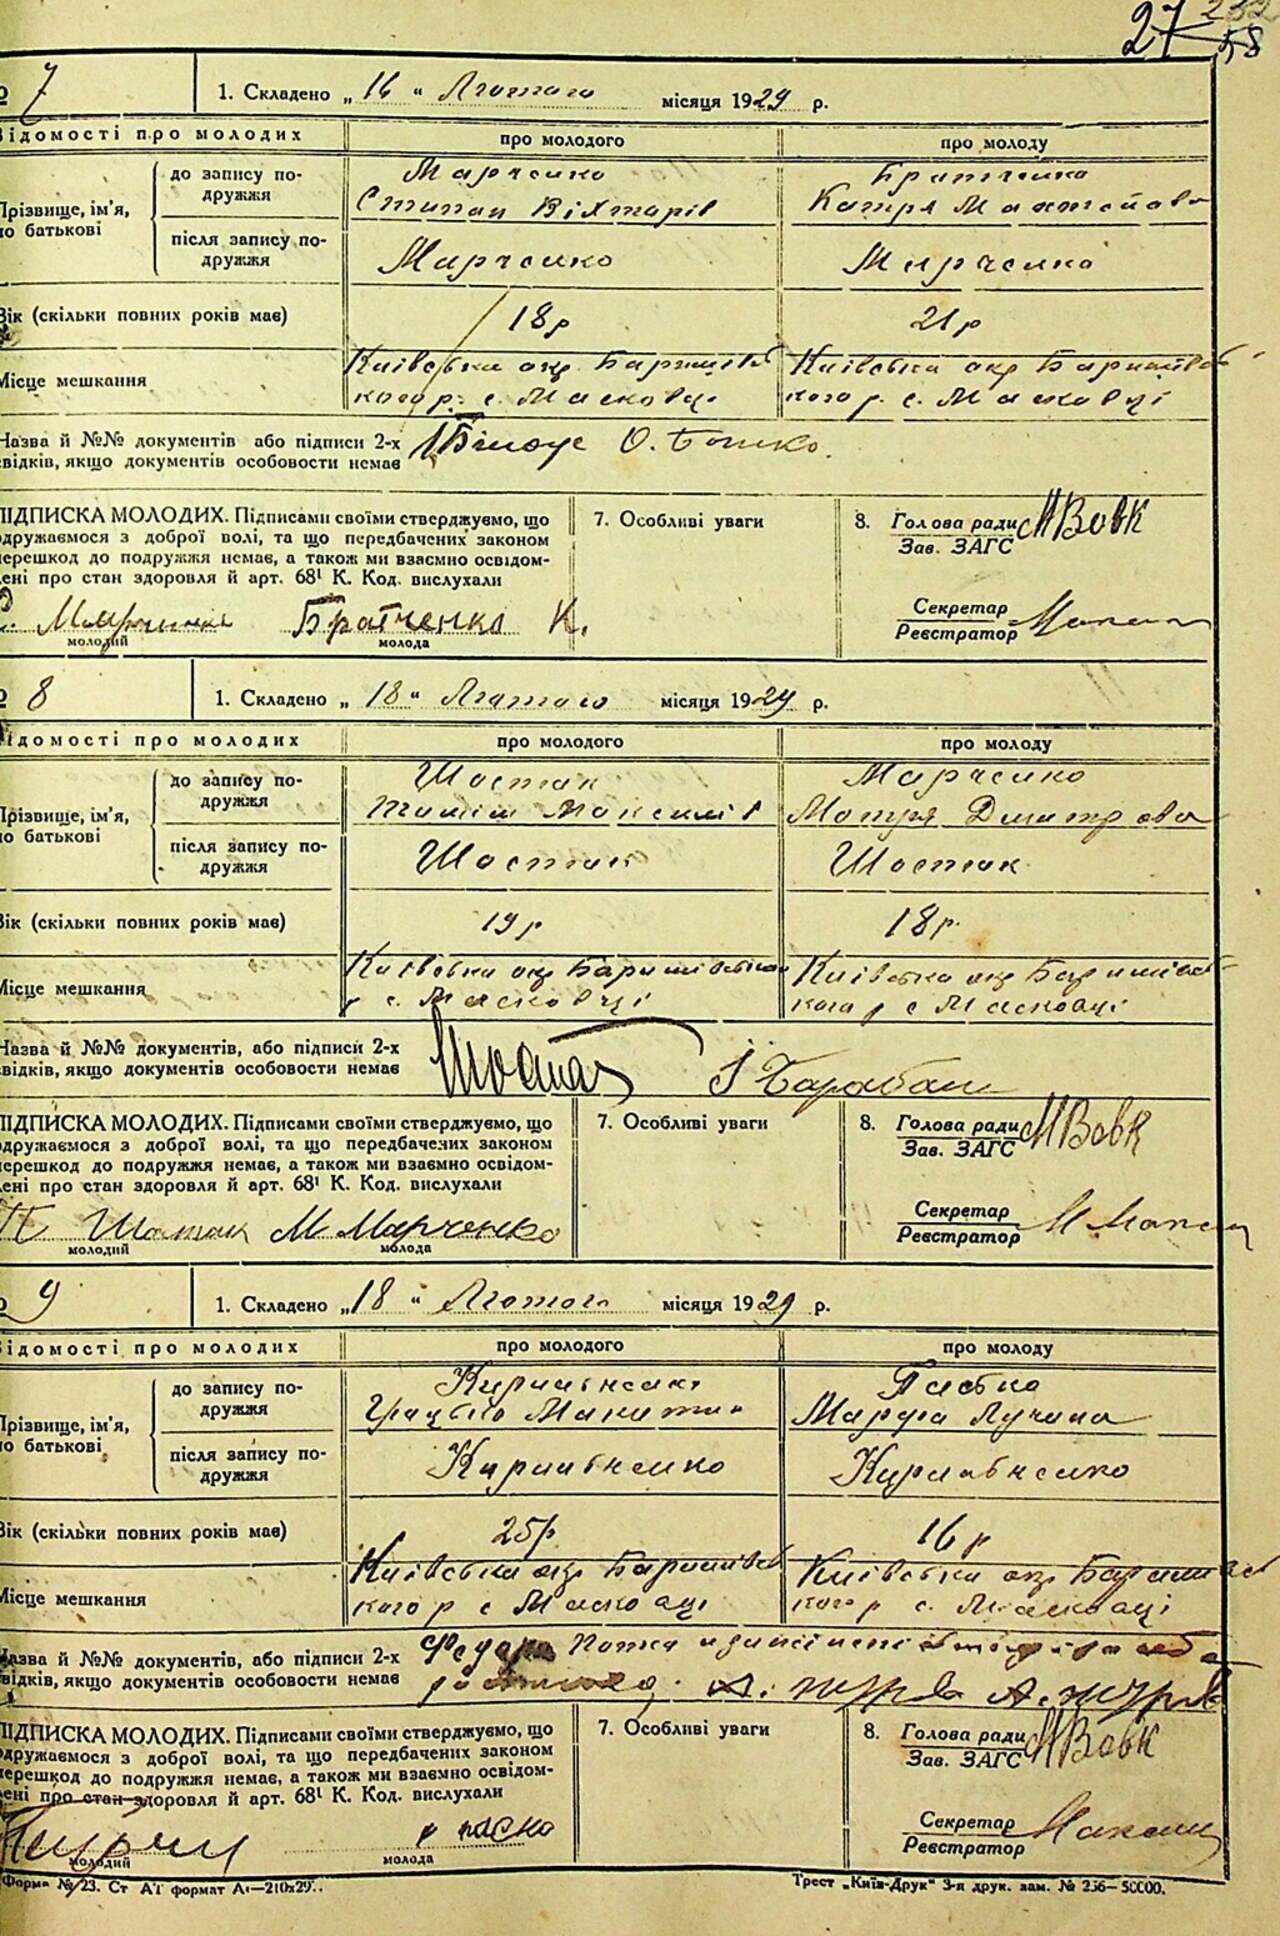 27 58
7 1. Складено „ 16 “ Лютого місяця 1929 р.
Відомості про молодих про молодого про молоду
до запису по-дружжя Марченко Братченко
Прізвище, ім'я, по батькові Степан Віхтарів Катря Махтейова
після запису по-дружжя Марченко Марченко
Вік (скільки повних років має) 18 р 21 р
Київська окр Баришівсь Київська окр Баришівсь
Місце мешкання кого р. с. Масковці кого р. с. Масковці
Назва й №№ документів або підписи 2-х
свідків, якщо документів особовости немає Білоус О. Бошко.
ПІДПИСКА МОЛОДИХ. Підписами своїми стверджуємо, що 7. Особливі уваги 8. Голова ради МВовк
одружаємося з доброї волі, та що передбачених законом Зав. ЗАГС
перешкод до подружжя немає, а також ми взаємно освідом-
лені про стан здоровля й арт. 68¹ К. Код. вислухали
Секретар
Марченко Братченко К. Реєстратор
молодий молода
8 1. Складено „ 18 “ Лютого місяця 1929 р.
Відомості про молодих про молодого про молоду
до запису по-дружжя Шостак Марченко
Прізвище, ім'я, по батькові Максимів Мотря Дмитрова
після запису по-дружжя Шостак Шостак
Вік (скільки повних років має) 19 р 18 р.
Київська окр Баришівського Київська окр Баришівсь
Місце мешкання р с. Масковці кого р с Масковці
Назва й №№ документів, або підписи 2-х
свідків, якщо документів особовости немає Шостак І Барабаш
ПІДПИСКА МОЛОДИХ. Підписами своїми стверджуємо, що 7. Особливі уваги 8. Голова ради МВовк
одружаємося з доброї волі, та що передбачених законом Зав. ЗАГС
перешкод до подружжя немає, а також ми взаємно освідом-
лені про стан здоровля й арт. 68¹ К. Код. вислухали
Секретар
Шостак М Марченко Реєстратор
молодий молода
9 1. Складено „ 18 “ Лютого місяця 1929 р.
Відомості про молодих про молодого про молоду
до запису по-дружжя
Прізвище, ім'я, по батькові Грицько Микитин Марфа Лучина
після запису по-дружжя
Вік (скільки повних років має) 25 р 16 р
Київська окр Баришівсь Київська окр Баришівсь
Місце мешкання кого р с Масковці кого р с. Масковці
Назва й №№ документів, або підписи 2-х
свідків, якщо документів особовости немає
ПІДПИСКА МОЛОДИХ. Підписами своїми стверджуємо, що 7. Особливі уваги 8. Голова ради МВовк
одружаємося з доброї волі, та що передбачених законом Зав. ЗАГС
перешкод до подружжя немає, а також ми взаємно освідом-
лені про стан здоровля й арт. 68¹ К. Код. вислухали
Секретар
Реєстратор
молодий молода
Форма № 23. Ст А1 формат А4—210х297. Трест „Київ-Друк“ 3-я друк. зам. № 256—50000.